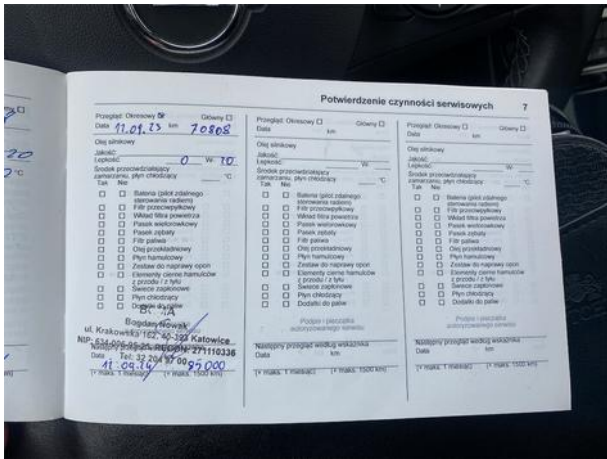 Potwierdzenie czynności serwisowych 7
Przegląd: Okresowy Główny
Data 11.09.23 km 70808
Olej silnikowy
Jakość:
Lepkość: 0 W- 20
Środek przeciwdziałający
zamarzaniu, płyn chłodzący °C
Tak Nie
Bateria (pilot zdalnego
sterowania radiem)
Filtr przeciwpyłkowy
Wkład filtra powietrza
Pasek wielorowkowy
Pasek zębaty
Filtr paliwa
Olej przekładniowy
Płyn hamulcowy
Zestaw do naprawy opon
Elementy cierne hamulców
z przodu / z tyłu
Świece zapłonowe
Płyn chłodzący
Dodatki do paliw
Bogdan Nowak
ul. Krakowska 162, 40-393 Katowice
REGON: 271110336
Następny przegląd
Tel: 32 204 97 00
Data 11.09.24 85000
(+ maks. 1 miesiąc) (+ maks. 1500 km)
Przegląd: Okresowy Główny
Data km
Olej silnikowy
Jakość:
Lepkość: W-
Środek przeciwdziałający
zamarzaniu, płyn chłodzący °C
Tak Nie
Bateria (pilot zdalnego
sterowania radiem)
Filtr przeciwpyłkowy
Wkład filtra powietrza
Pasek wielorowkowy
Pasek zębaty
Filtr paliwa
Olej przekładniowy
Płyn hamulcowy
Zestaw do naprawy opon
Elementy cierne hamulców
z przodu / z tyłu
Świece zapłonowe
Płyn chłodzący
Dodatki do paliw
Podpis i pieczątka
autoryzowanego serwisu
Następny przegląd według wskaźnika
Data km
(+ maks. 1 miesiąc) (+ maks. 1500 km)
Przegląd: Okresowy Główny
Data km
Olej silnikowy
Jakość:
Lepkość: W-
Środek przeciwdziałający
zamarzaniu, płyn chłodzący °C
Tak Nie
Bateria (pilot zdalnego
sterowania radiem)
Filtr przeciwpyłkowy
Wkład filtra powietrza
Pasek wielorowkowy
Pasek zębaty
Filtr paliwa
Olej przekładniowy
Płyn hamulcowy
Zestaw do naprawy opon
Elementy cierne hamulców
z przodu / z tyłu
Świece zapłonowe
Płyn chłodzący
Dodatki do paliw
Podpis i pieczątka
autoryzowanego serwisu
Następny przegląd według wskaźnika
Data km
(+ maks. 1 miesiąc) (+ maks. 1500 km)